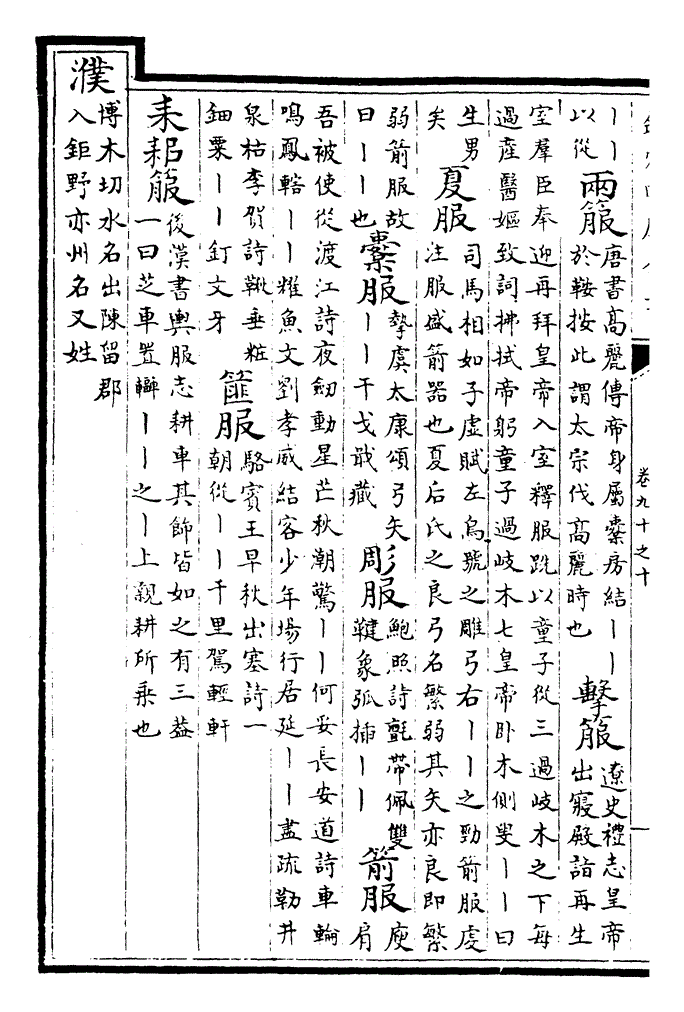 卷九十之十
｜｜
以從
兩箙
唐書高麗傳帝身屬櫜房結｜｜
於鞍按此謂太宗伐高麗時也
擊箙
遼史禮志皇帝
出寢殿詣再生
室羣臣奉迎再拜皇帝入室釋服跣以童子從三過岐木之下每
過產醫嫗致詞拂拭帝躬童子過岐木七皇帝卧木側叟｜｜曰
生男
矣
夏服
司馬相如子虛賦左烏號之雕弓右｜｜之勁箭服虔
注服盛箭器也夏后氏之良弓名繁弱其矢亦良即繁
弱箭服故
曰｜｜也
櫜服
摯虞太康頌弓矢
｜｜干戈戢藏
彫服
鮑照詩氊帶佩雙
鞬象弧插｜｜
箭服
庾
肩
吾被使從渡江詩夜劒動星芒秋潮驚｜｜何妥長安道詩車輪
鳴鳳轄｜｜耀魚文劉孝威結客少年場行居延｜｜盡疏勒井
泉枯李賀詩鞦垂粧
鈿粟｜｜釘文牙
篚服
駱賓王早秋出塞詩一
朝從｜｜千里駕輕軒
耒耜箙
後漢書輿服志耕車其飾皆如之有三蓋
一曰芝車置轓｜｜之｜上親耕所乗也
濮
博木切水名出陳留郡
入鉅野亦州名又姓